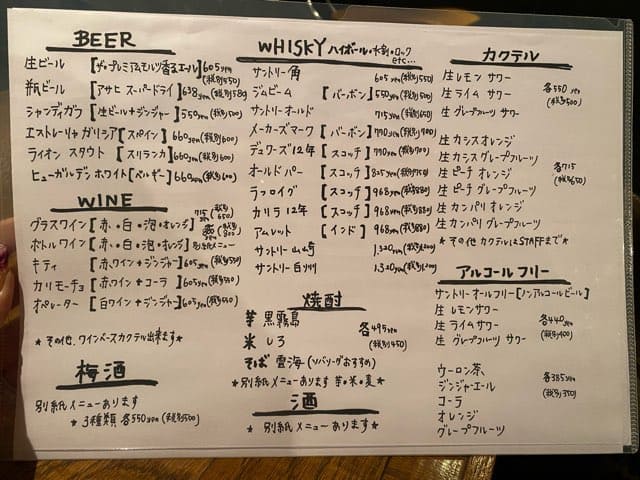 BEER
生ビール [ザ・プレミアムモルツ香るエール] 605yen (税別550)
瓶ビール [アサヒ スーパードライ] 638yen (税別580)
シャンディガフ [生ビール+ジンジャー] 550yen (税別500)
エストレーリャ ガリシア [スペイン] 660yen (税別600)
ライオン スタウト [スリランカ] 660yen (税別600)
ヒューガルデン ホワイト [ベルギー] 660yen (税別600)
WINE
グラスワイン [赤・白・泡・オレンジ] 715 (税別650)
(税別800)
ボトルワイン [赤・白・泡・オレンジ] 別紙メニュー
キティ [赤ワイン+ジンジャー] 605yen (税別550)
カリモーチョ [赤ワイン+コーラ] 605yen (税別550)
オペレーター [白ワイン+ジンジャー] 605yen (税別550)
*その他、ワインベースカクテル出来ます*
梅酒
別紙メニューあります
*3種類 各550yen (税別500)
WHISKY ハイボール・水割・ロック etc...
サントリー 角 605yen (税別550)
ジムビーム [バーボン] 550yen (税別500)
サントリーオールド 715yen (税別650)
メーカーズマーク [バーボン] 770yen (税別700)
デュワーズ12年 [スコッチ] 770yen (税別700)
オールドパー [スコッチ]
ラフロイグ [スコッチ] 968yen (税別880)
カリラ 12年 [スコッチ] 968yen (税別880)
アムレット [インド] 968yen (税別880)
サントリー 山崎 1,320yen (税別1,200)
サントリー 白州 1,320yen (税別1,200)
焼酎
芋 黒霧島
米 しろ
そば 雲海 (ソバリーグおすすめ)
各495yen (税別450)
*別紙メニューあります 芋・米・麦*
酒
*別紙メニューあります*
カクテル
生レモン サワー
生ライム サワー
生グレープフルーツ サワー
各550yen (税別500)
生カシスオレンジ
生カシスグレープフルーツ
生ピーチ オレンジ
生ピーチ グレープフルーツ
生カンパリ オレンジ
生カンパリ グレープフルーツ
各715 (税別650)
*その他カクテルはSTAFFまで*
アルコールフリー
サントリー オールフリー [ノンアルコールビール]
生 レモンサワー
生 ライムサワー
生 グレープフルーツ サワー
各440yen (税別400)
ウーロン茶、
ジンジャーエール
コーラ
オレンジ
グレープフルーツ
各385yen (税別350)